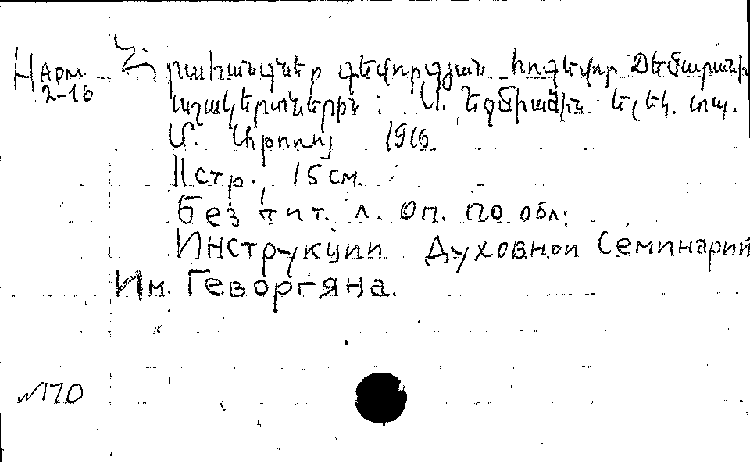 НАрм 2-16 Հրահանգներ գեվորգյան հոգեվոր Ճեմարանի
աշակերտներին: Ս. եզմիածին ելեկ. տպ.
Մ. Սիրոույ 1916
11 стр. 15 см.
без тит. л. оп. по обл:
Инструкции духовной Семинарий
Им. Геворгяна.
№170